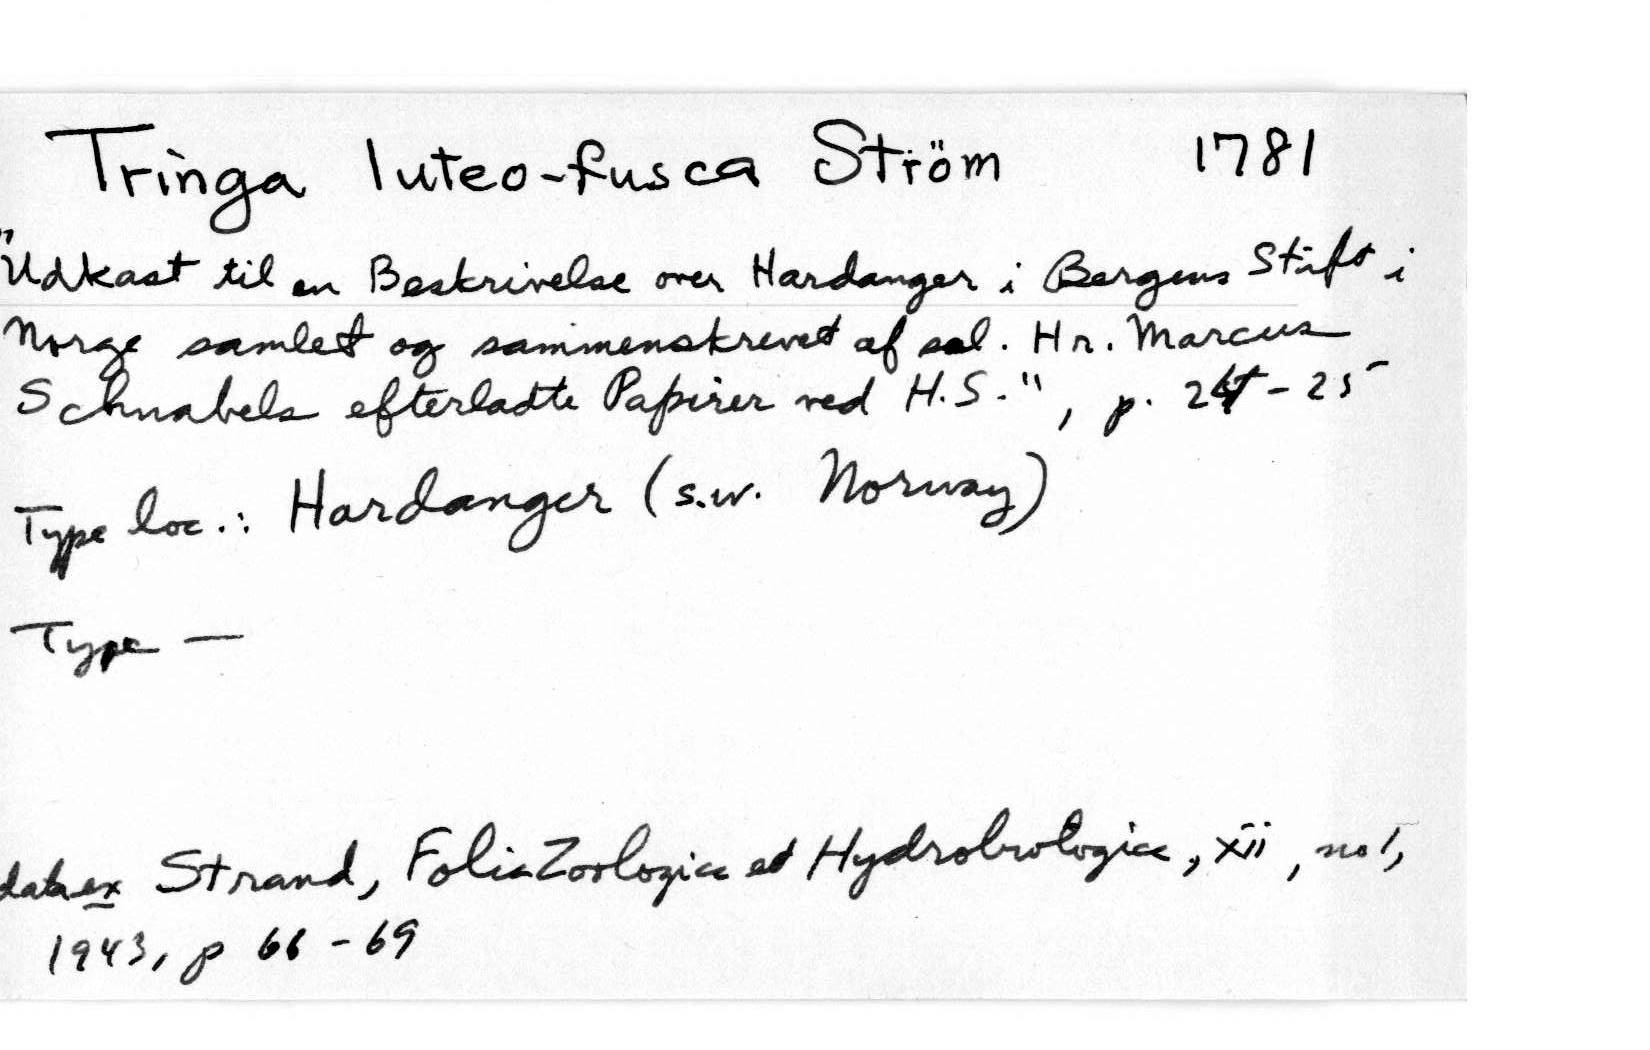 Tringa luteo-fusca Ström 1781
"Udkast til en Beskrivelse over Hardanger i Bergens Stift i
Norge samlet og sammenskrevet af sal. Hr. Marcus
Schnabels efterladte Papirer ved H.S.", p. 24-25
Type loc.: Hardanger (s.w. Norway)
Type —
data ex Strand, Folia Zoologica et Hydrobiologica, xii, no 1,
1943, p 66-69